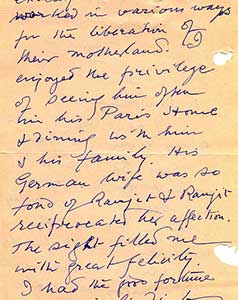 worked in various ways
for the liberation of
their motherland. I
enjoyed the privilege
of seeing him often
in his Paris Home
& dining with him
& his family. His
German wife was so
fond of Ranjit & Ranjit
reciprocated her affection.
The sight filled me
with great felicity.
I had the good fortune